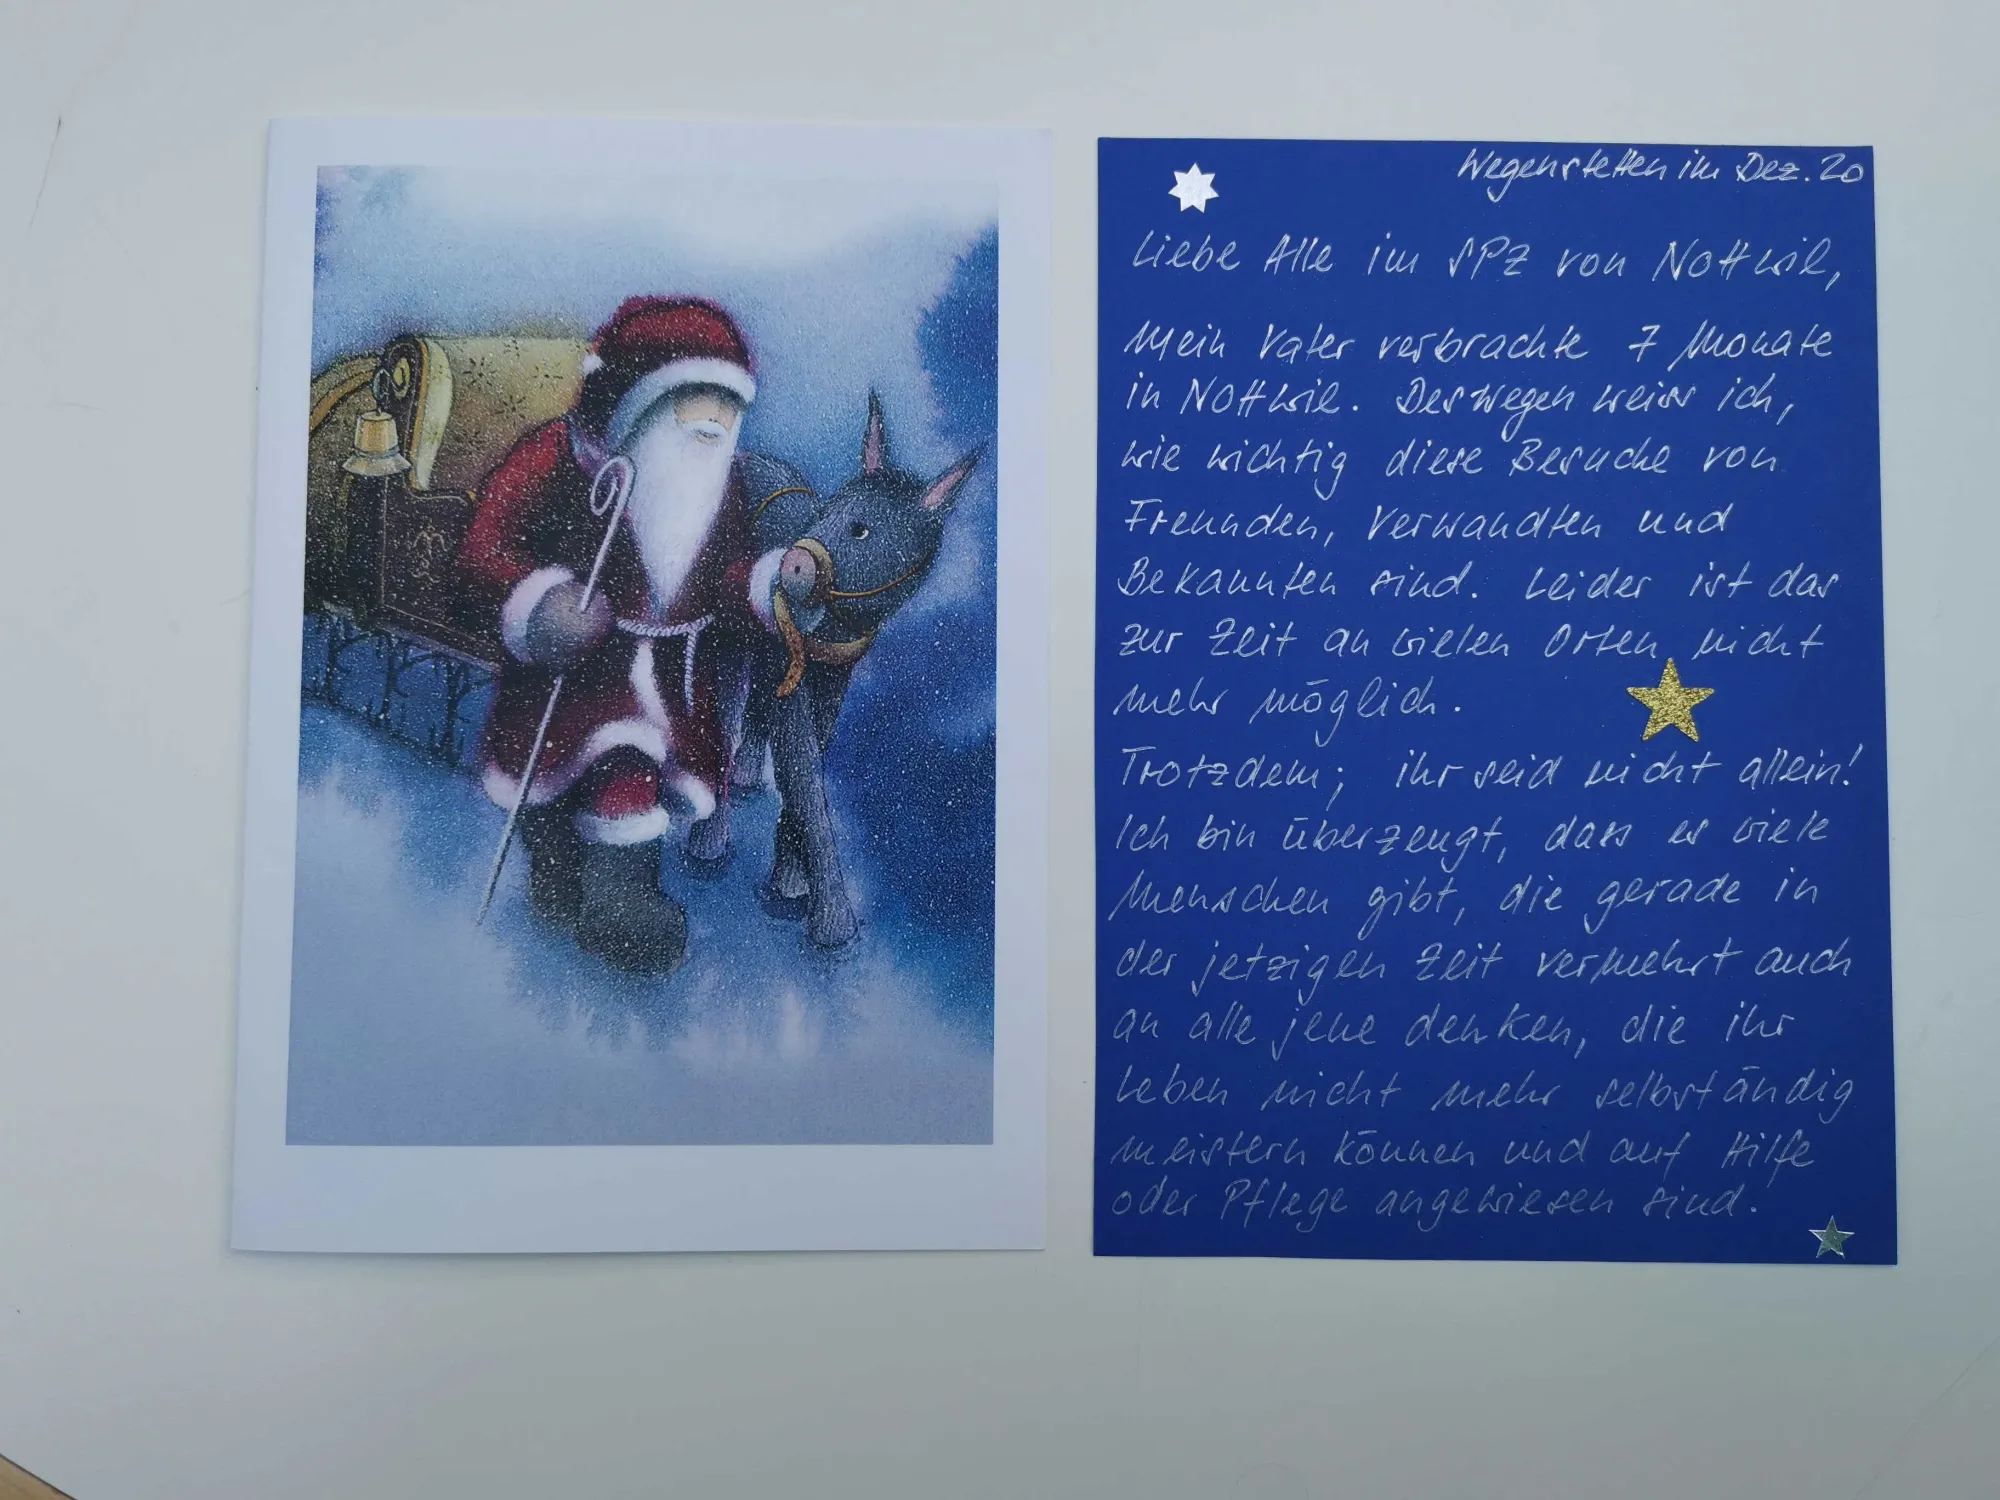 Wegenstetten im Dez. 20
Liebe Alle im SPZ von Nottwil,
Mein Vater verbrachte 7 Monate
in Nottwil. Deswegen weiss ich,
wie wichtig diese Besuche von
Freunden, Verwandten und
Bekannten sind. Leider ist das
zur Zeit an vielen Orten nicht
mehr möglich.
Trotzdem; ihr seid nicht allein!
Ich bin überzeugt, dass es viele
Menschen gibt, die gerade in
der jetzigen Zeit vermehrt auch
an alle jene denken, die ihr
Leben nicht mehr selbständig
meistern können und auf Hilfe
oder Pflege angewiesen sind.